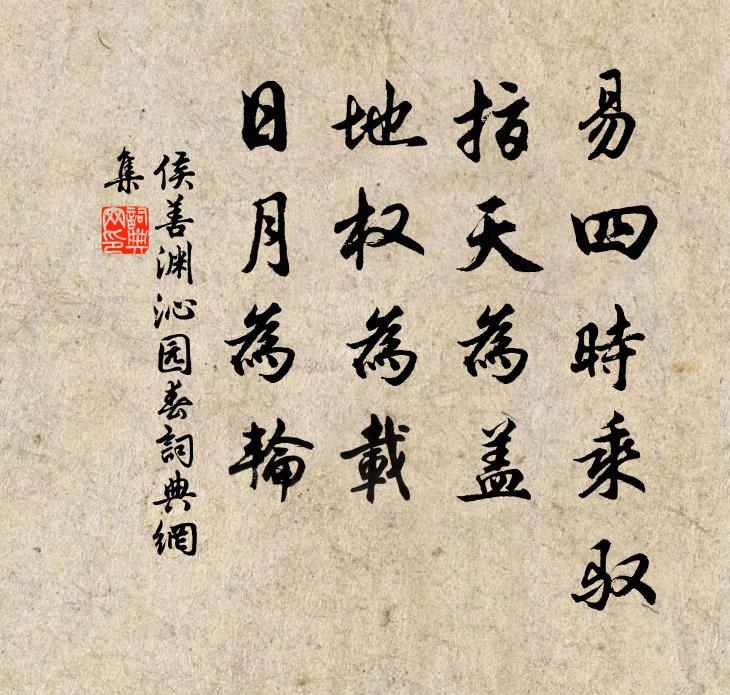 易四時乘驭
指天為盖
地权為載
日月為輪
侯善渊沁园春詞典網
集
詞典网印